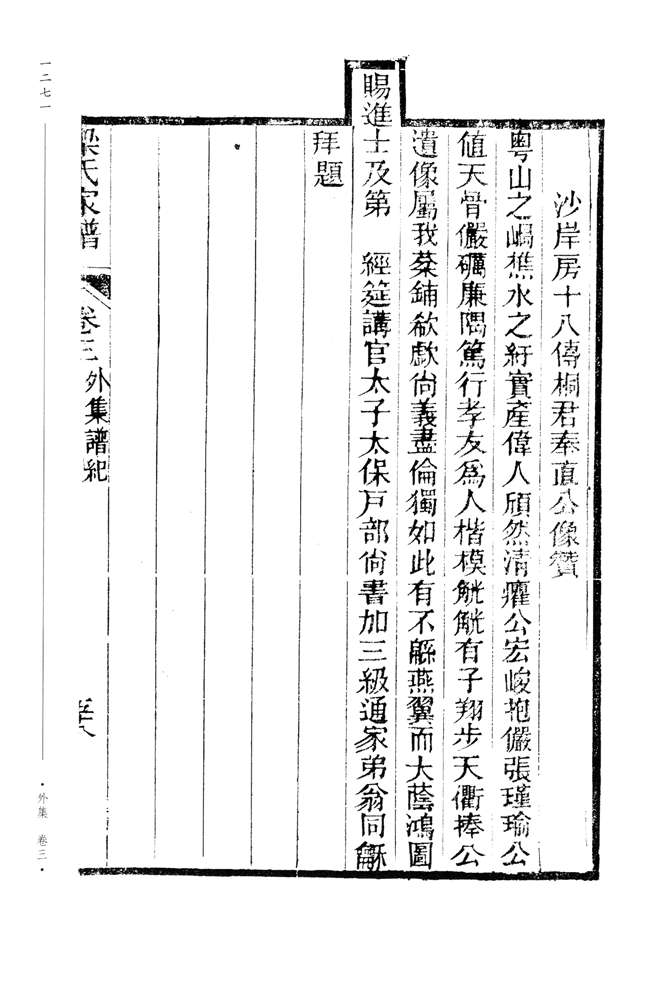 沙岸房十八傳桐君奉直公像贊
粵山之嵑樵水之紆實產偉人頎然清癯公宏峻抱儼張瑾瑜公
值天骨儼礪廉隅篤行孝友為人楷模觥觥有子翔步天衢捧公
遺像屬我棻鋪欷歔尚義盡倫獨如此有不緜燕翼而大蔭鴻圖
賜進士及第　經筵講官太子太保戶部尚書加三級通家弟翁同龢
拜題
梁氏家譜　卷三外集譜紀
一二七一
·外集　卷三·